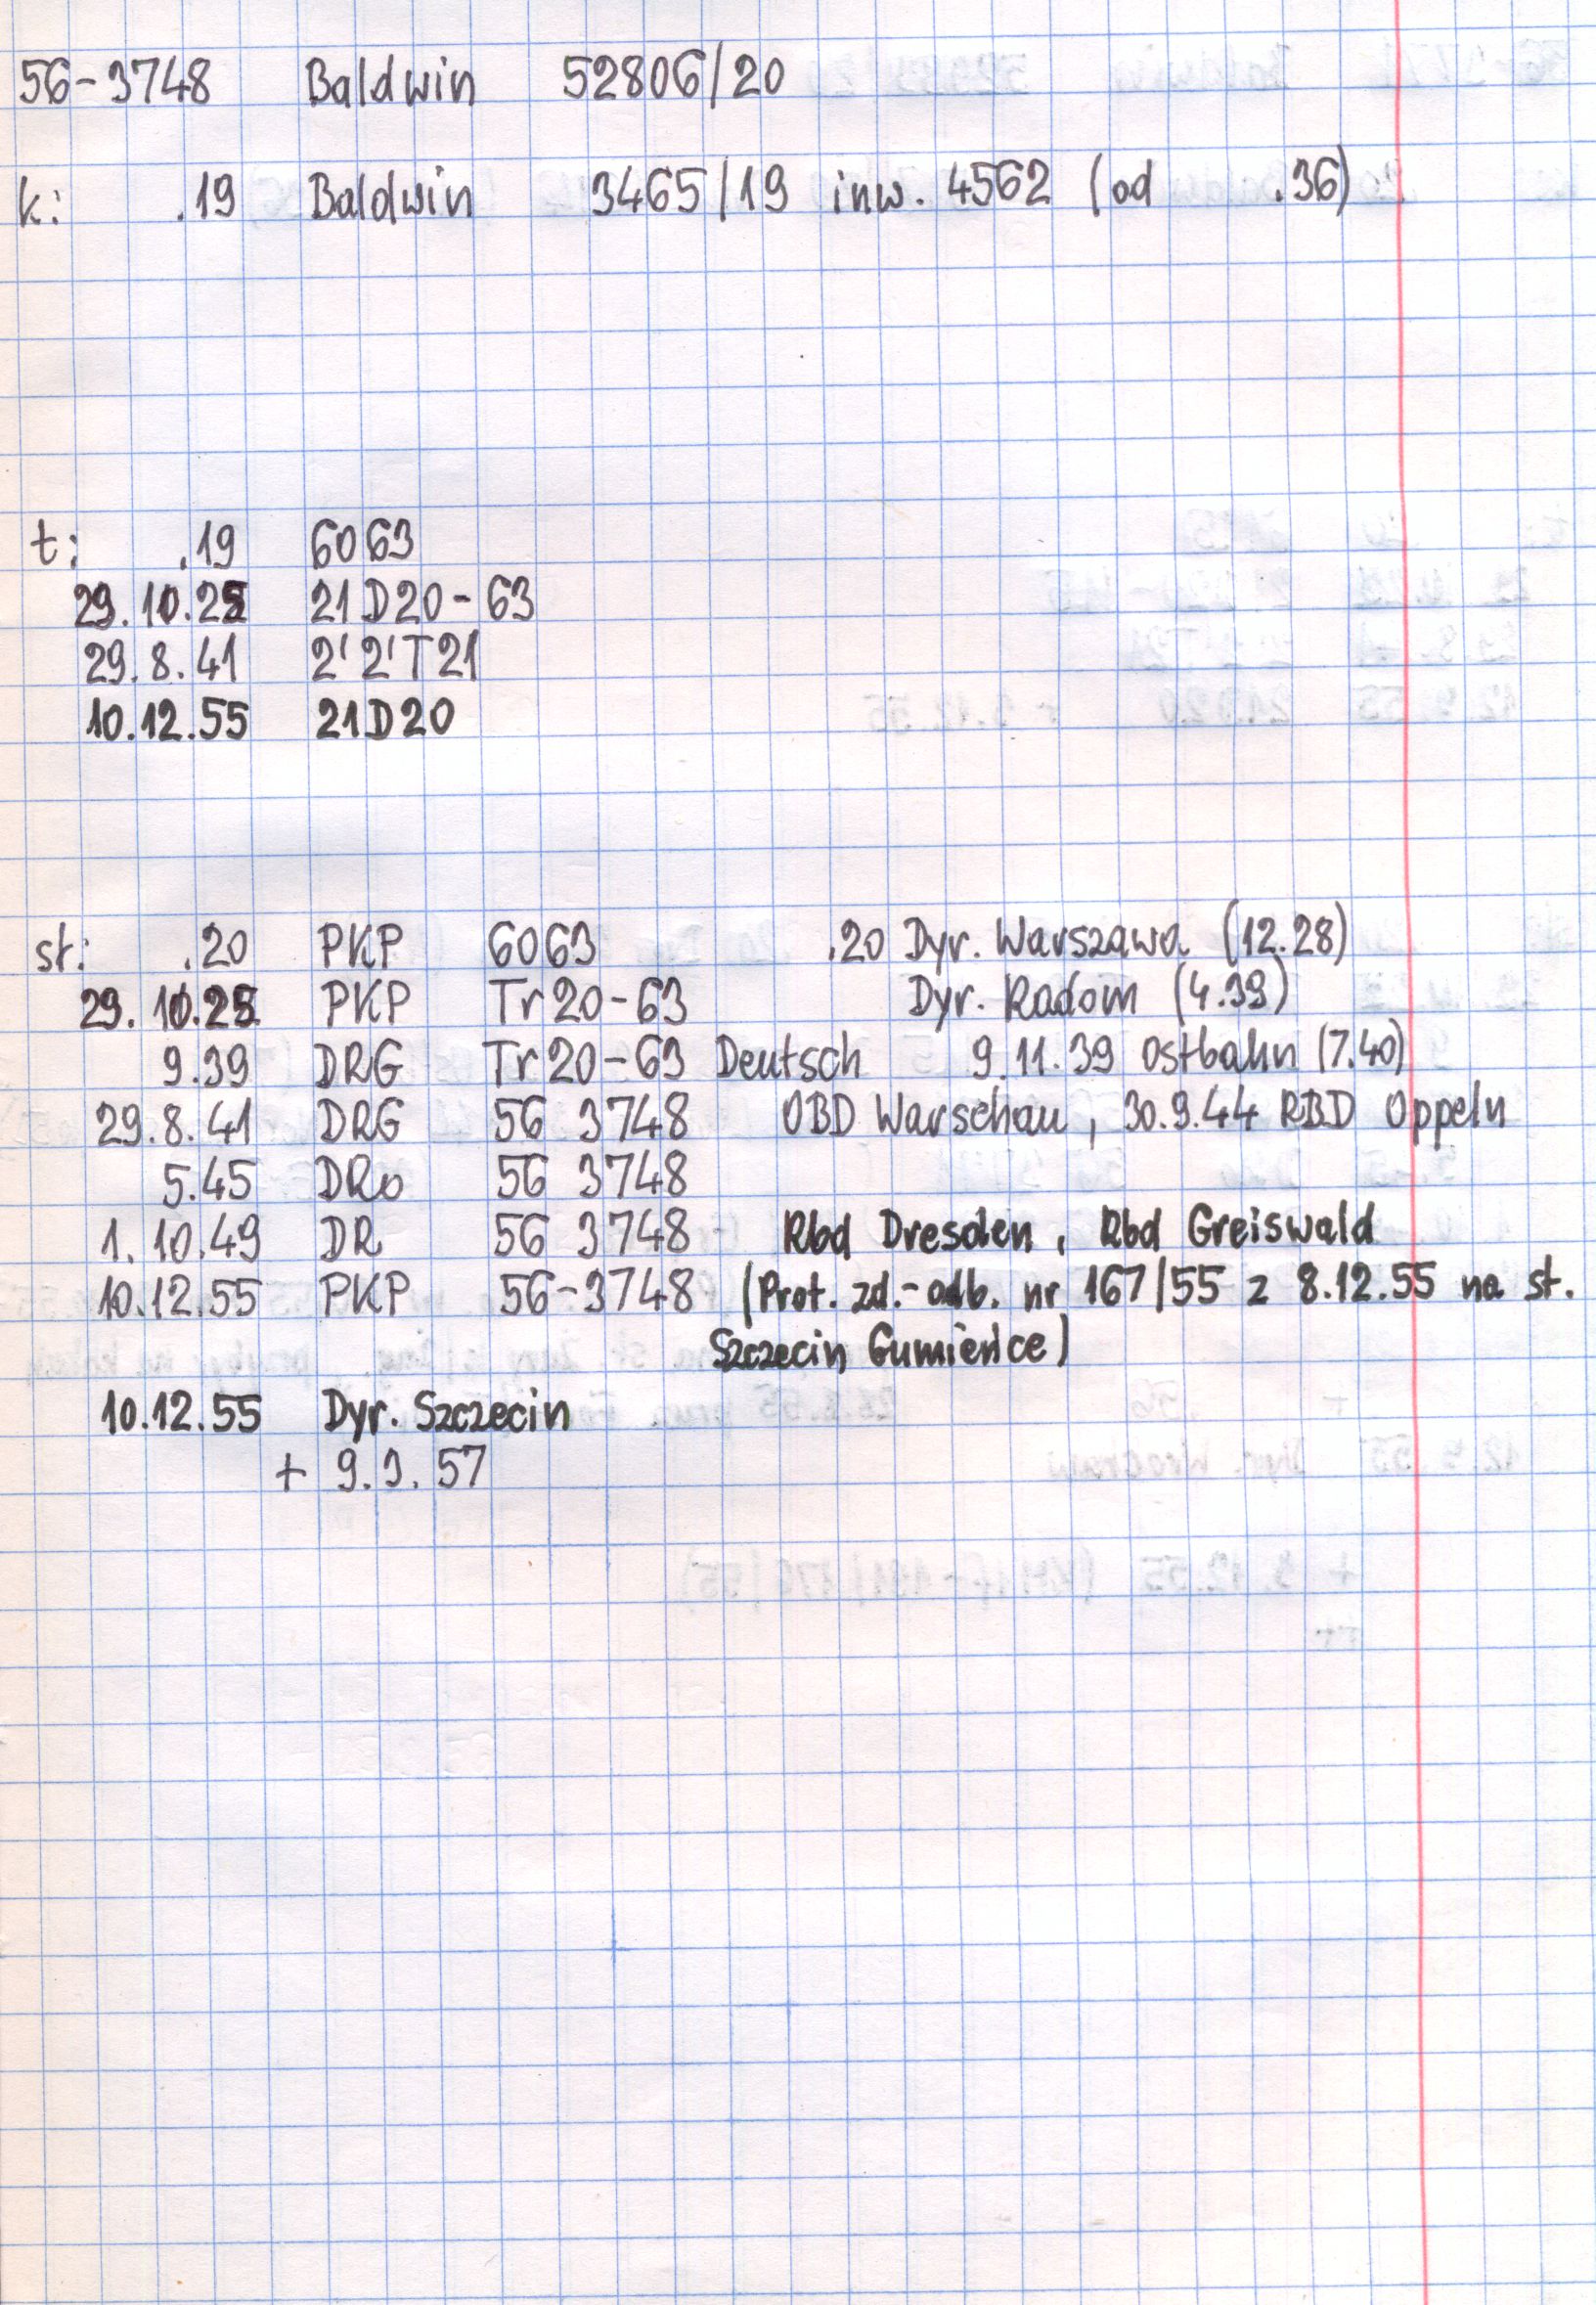 56-3748 Baldwin 52806/20
k: .19 Baldwin 3465/19 inw. 4562 (od .36)
t: .19 6063
29.10.25 21D20-63
29.8.41 2'2'T21
10.12.55 21D20
st: .20 PKP 6063 .20 Dyr. Warszawa (12.28)
29.10.25 PKP Tr20-63 Dyr. Radom (4.39)
9.39 DRG Tr20-63 Deutsch 9.11.39 Ostbahn (7.40)
29.8.41 DRG 56 3748 OBD Warschau, 30.9.44 RBD Oppeln
5.45 DRo 56 3748
1.10.49 DR 56 3748 Rbd Dresden, Rbd Greiswald
10.12.55 PKP 56-3748 (Prot. zd.-odb. nr 167/55 z 8.12.55 na st.
Szczecin Gumieńce)
10.12.55 Dyr. Szczecin
+ 9.3.57